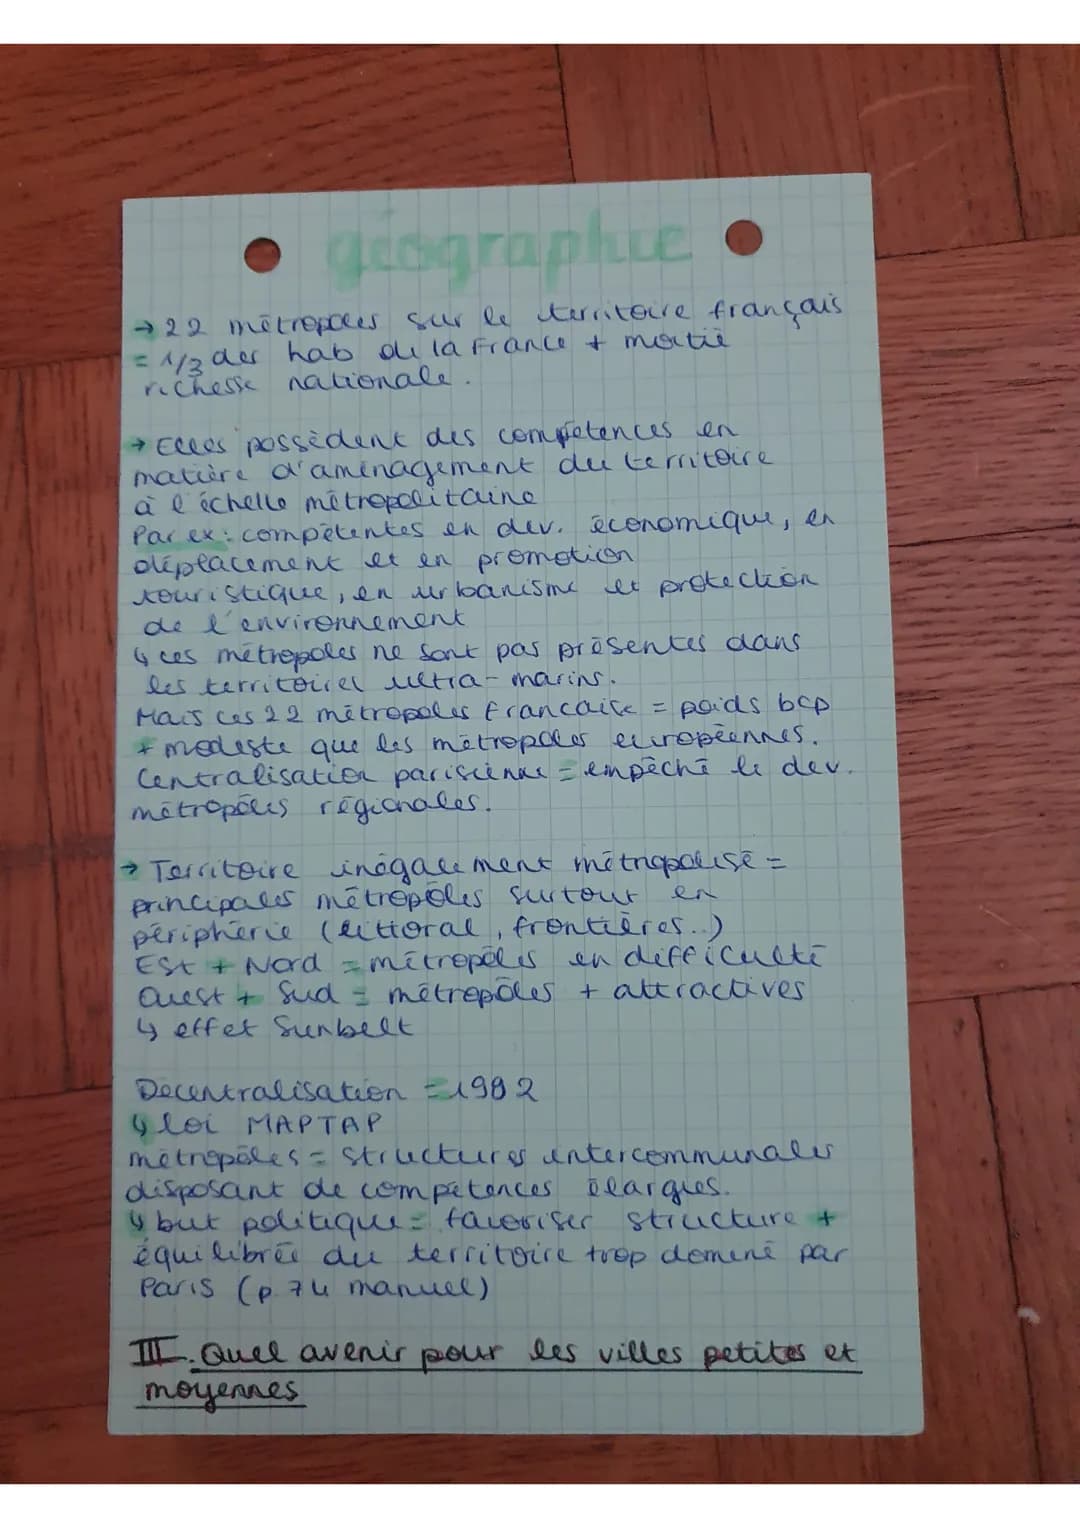 géographie
→ 22 métropoles sur le territoire français
= 1/3 des hab de la France + moitié
richesse nationale.
→ Elles possèdent des compétences en
matière d'aménagement du territoire
à l'échelle métropolitaine
Par ex : compétentes en dev. économique, en
déplacement et en promotion
touristique, en urbanisme et protection
de l'environnement
↳ ces métropoles ne sont pas présentes dans
les territoires ultra-marins.
Mais ces 22 métropoles française = poids bcp
+ modeste que les métropoles européennes.
Centralisation parisienne = empêché le dev.
métropoles régionales.
→ Territoire inégalement métropolisé =
principales métropoles surtout en
périphérie (littoral, frontières..)
Est + Nord = métropoles en difficulté
Ouest + Sud = métropoles + attractives
↳ effet Sunbelt
Décentralisation = 1982
↳ loi MAPTAP
métropoles = structures intercommunales
disposant de compétences élargies.
↳ but politique = favoriser structure +
équilibrée du territoire trop dominé par
Paris (p. 74 manuel)
III. Quel avenir pour les villes petites et
moyennes